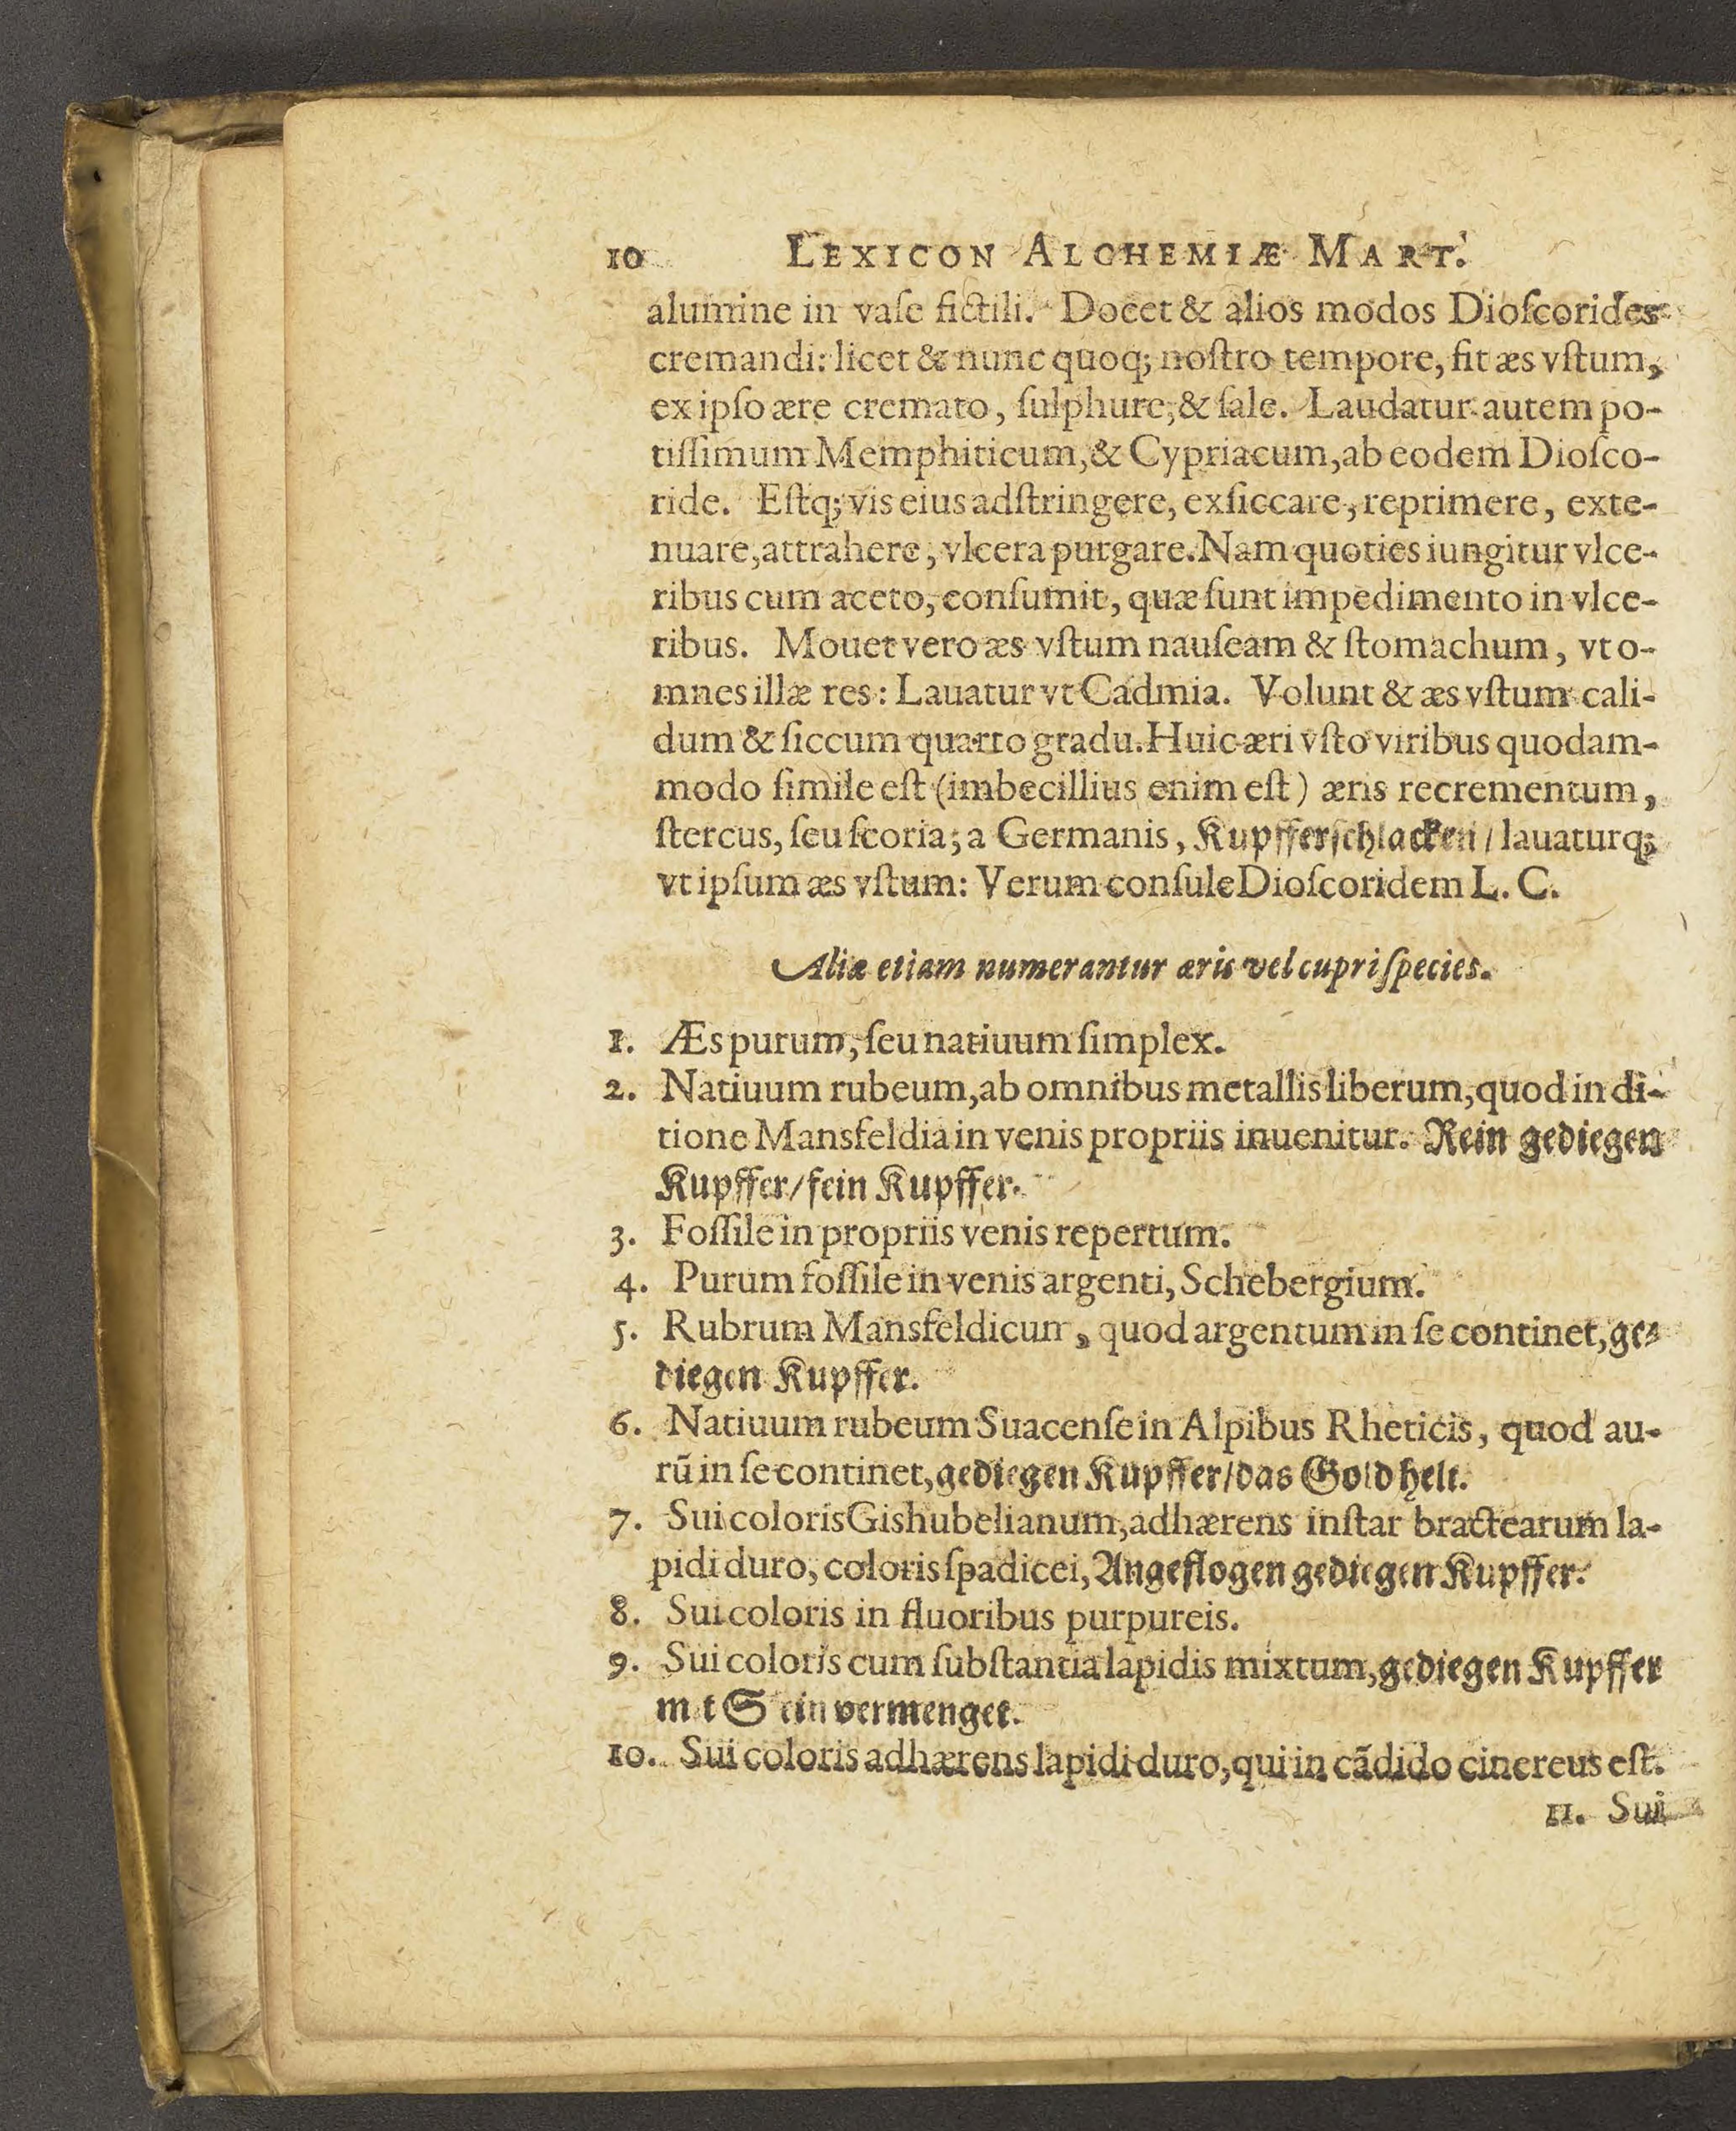 10 LEXICON ALCHEMIÆ MART.
alumine in vaſe fictili. Docet & alios modos Dioſcorides
cremandi: licet & nunc quoq; noſtro tempore, fit æs vſtum,
ex ipſo ære cremato, ſulphure, & ſale. Laudatur autem po-
tiſſimum Memphiticum, & Cypriacum, ab eodem Dioſco-
ride. Eſtq; vis eius adſtringere, exſiccare, reprimere, exte-
nuare, attrahere, vlcera purgare. Nam quoties iungitur vlce-
ribus cum aceto, conſumit, quæ ſunt impedimento in vlce-
ribus. Mouet vero æs vſtum nauſeam & ſtomachum, vt o-
mnes illæ res: Lauatur vt Cadmia. Volunt & æs vſtum cali-
dum & ſiccum quarto gradu. Huic æri vſto viribus quodam-
modo ſimile eſt (imbecillius enim eſt) æris recrementum,
ſtercus, ſeu ſcoria; a Germanis, Kupfferſchlacken / lauaturq;
vt ipſum æs vſtum: Verum conſule Dioſcoridem L. C.
Aliæ etiam numerantur æris vel cupri ſpecies.
1. Æs purum, ſeu natiuum ſimplex.
2. Natiuum rubeum, ab omnibus metallis liberum, quod in di-
tione Mansfeldia in venis propriis inuenitur. Rein gediegen
Kupffer / fein Kupffer.
3. Foſſile in propriis venis repertum.
4. Purum foſſile in venis argenti, Schebergium.
5. Rubrum Mansfeldicum, quod argentum in ſe continet, ge-
diegen Kupffer.
6. Natiuum rubeum Suacenſe in Alpibus Rheticis, quod au-
rũ in ſe continet, gediegen Kupffer / das Gold helt.
7. Sui coloris Gishubelianum, adhærens inſtar bractearum la-
pidi duro, coloris ſpadicei, Angeflogen gediegen Kupffer.
8. Sui coloris in fluoribus purpureis.
9. Sui coloris cum ſubſtantia lapidis mixtum, gediegen Kupffer
mit Stein vermenget.
10. Sui coloris adhærens lapidi duro, qui in cãdido cinereus eſt.
11. Sui